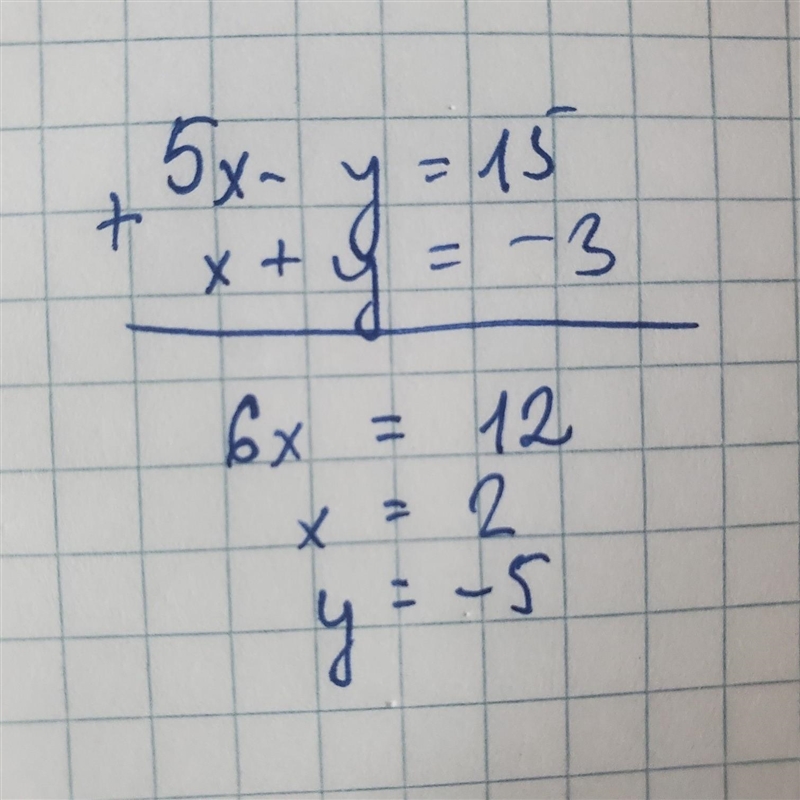 5x - y = 15
+
x + y = -3
6x = 12
x = 2
y = -5